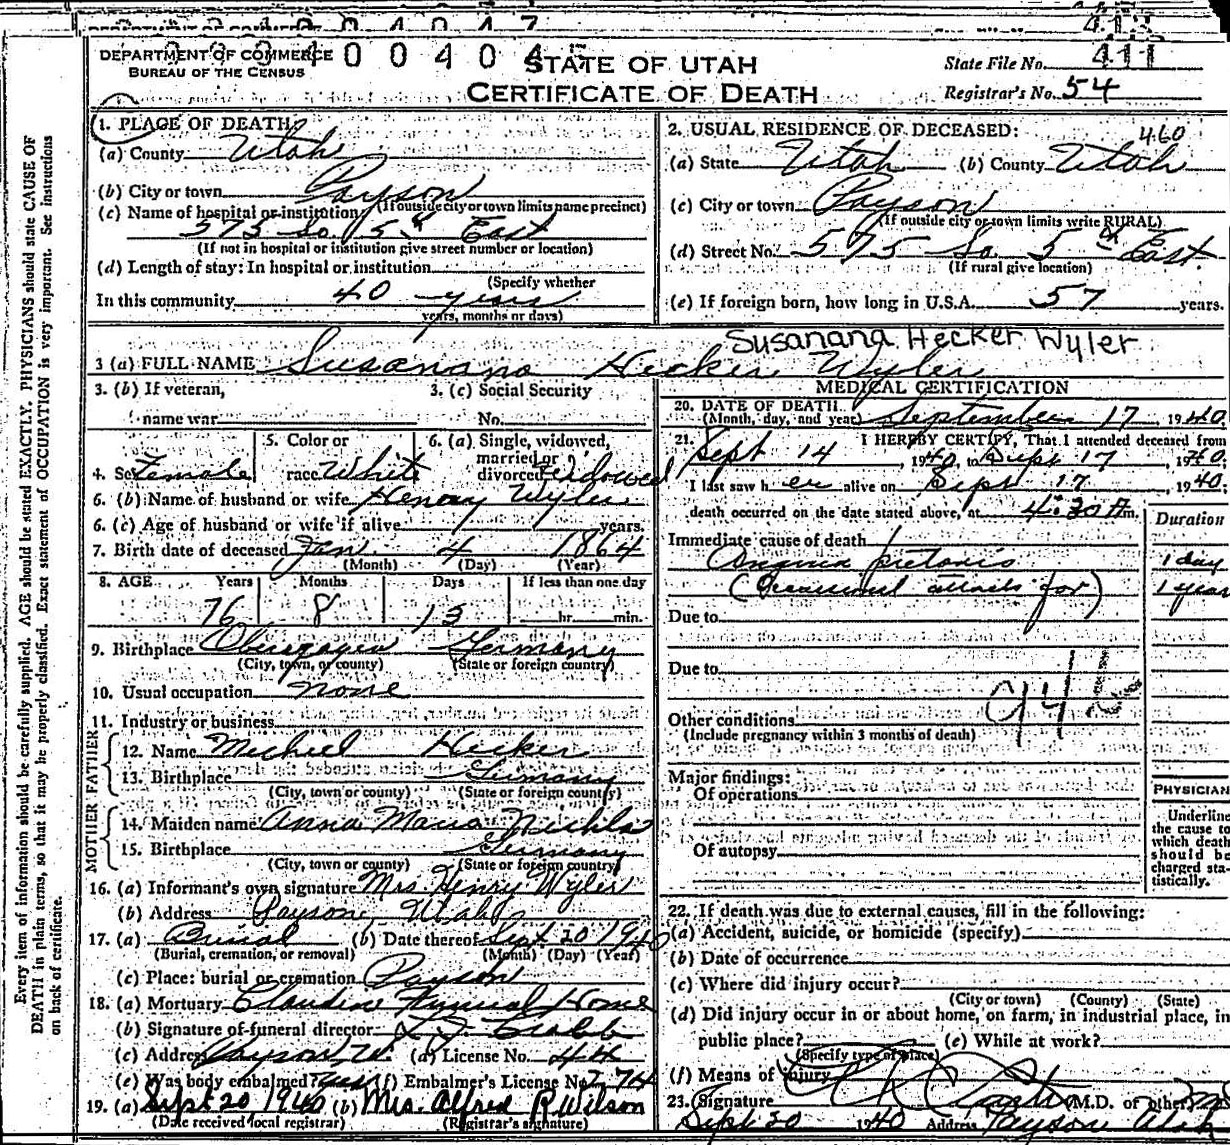 DEPARTMENT OF COMMERCE
BUREAU OF THE CENSUS
STATE OF UTAH
CERTIFICATE OF DEATH
State File No. 411
Registrar's No. 54
Every item of information should be carefully supplied. AGE should be stated EXACTLY. PHYSICIANS should state CAUSE OF
DEATH in plain terms, so that it may be properly classified. Exact statement of OCCUPATION is very important. See instructions
on back of certificate.
1. PLACE OF DEATH:
(a) County Utah
(b) City or town Payson
(If outside city or town limits name precinct)
(c) Name of hospital or institution
575 So. 5th East
(If not in hospital or institution give street number or location)
(d) Length of stay: In hospital or institution
(Specify whether
In this community 40 years
years, months or days)
2. USUAL RESIDENCE OF DECEASED:
460
(a) State Utah (b) County Utah
(c) City or town Payson
(If outside city or town limits write RURAL)
(d) Street No. 575 So. 5th East.
(If rural give location)
(e) If foreign born, how long in U.S.A. 57 years.
Susanana Hecker Wyler
3 (a) FULL NAME Susanana Hecker Wyler
3. (b) If veteran,
name war
3. (c) Social Security
No.
4. Sex Female
5. Color or
race White
6. (a) Single, widowed,
married or
divorced Widowed
6. (b) Name of husband or wife Henry Wyler
6. (c) Age of husband or wife if alive years.
7. Birth date of deceased Jan. 4 1864
(Month) (Day) (Year)
8. AGE Years Months Days If less than one day
76 8 13 hr. min.
9. Birthplace Germany
(City, town, or county) (State or foreign country)
10. Usual occupation none
11. Industry or business
FATHER
12. Name Michiel Hecker
13. Birthplace Germany
(City, town or county) (State or foreign country)
MOTHER
14. Maiden name Anna Maria
15. Birthplace Germany
(City, town or county) (State or foreign country)
16. (a) Informant's own signature Mrs. Henry Wyler
(b) Address Payson, Utah
17. (a) Burial (b) Date thereof Sept 20 1940
(Burial, cremation, or removal) (Month) (Day) (Year)
(c) Place: burial or cremation Payson
18. (a) Mortuary Claudine Funeral Home
(b) Signature of funeral director
(c) Address Payson, U. (d) License No. 44
(e) Was body embalmed? yes (f) Embalmer's License No. 274
19. (a) Sept 20, 1940 (b) Mrs. Alfred R Wilson
(Date received local registrar) (Registrar's signature)
MEDICAL CERTIFICATION
20. DATE OF DEATH
(Month, day, and year) September 17, 1940.
21. I HEREBY CERTIFY, That I attended deceased from
Sept 14, 1940, to Sept 17, 1940.
I last saw her alive on Sept 17, 1940.
death occurred on the date stated above, at 4:30 A m.
Duration
Immediate cause of death
Angina pectoris 1 day
(Occasional attacks for) 1 year
Due to
Due to
94
Other conditions
(Include pregnancy within 3 months of death)
Major findings:
Of operations
Of autopsy
PHYSICIAN
Underline
the cause to
which death
should be
charged sta-
tistically.
22. If death was due to external causes, fill in the following:
(a) Accident, suicide, or homicide (specify)
(b) Date of occurrence
(c) Where did injury occur?
(City or town) (County) (State)
(d) Did injury occur in or about home, on farm, in industrial place, in
public place? (e) While at work?
(Specify type of place)
(f) Means of injury
23. (Signature (M.D. of other) MD
Sept 20 1940 Address Payson Utah